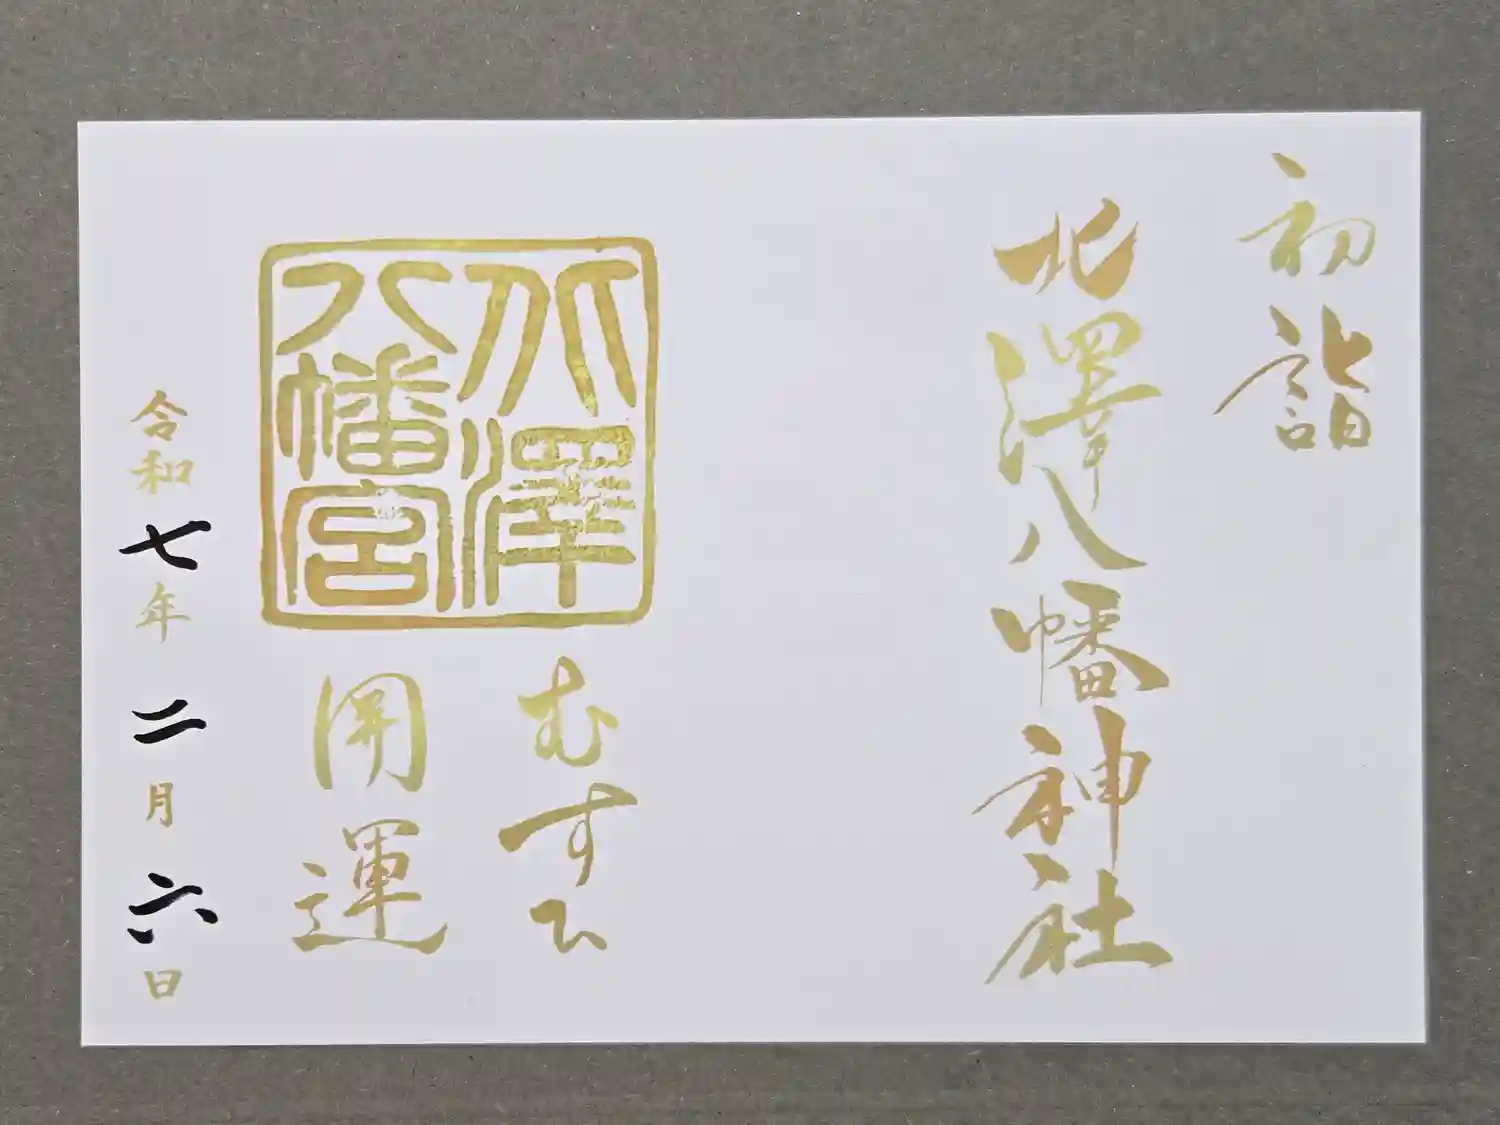 初詣
北澤八幡神社
北澤
八幡宮
むすひ
開運
令和七年二月六日